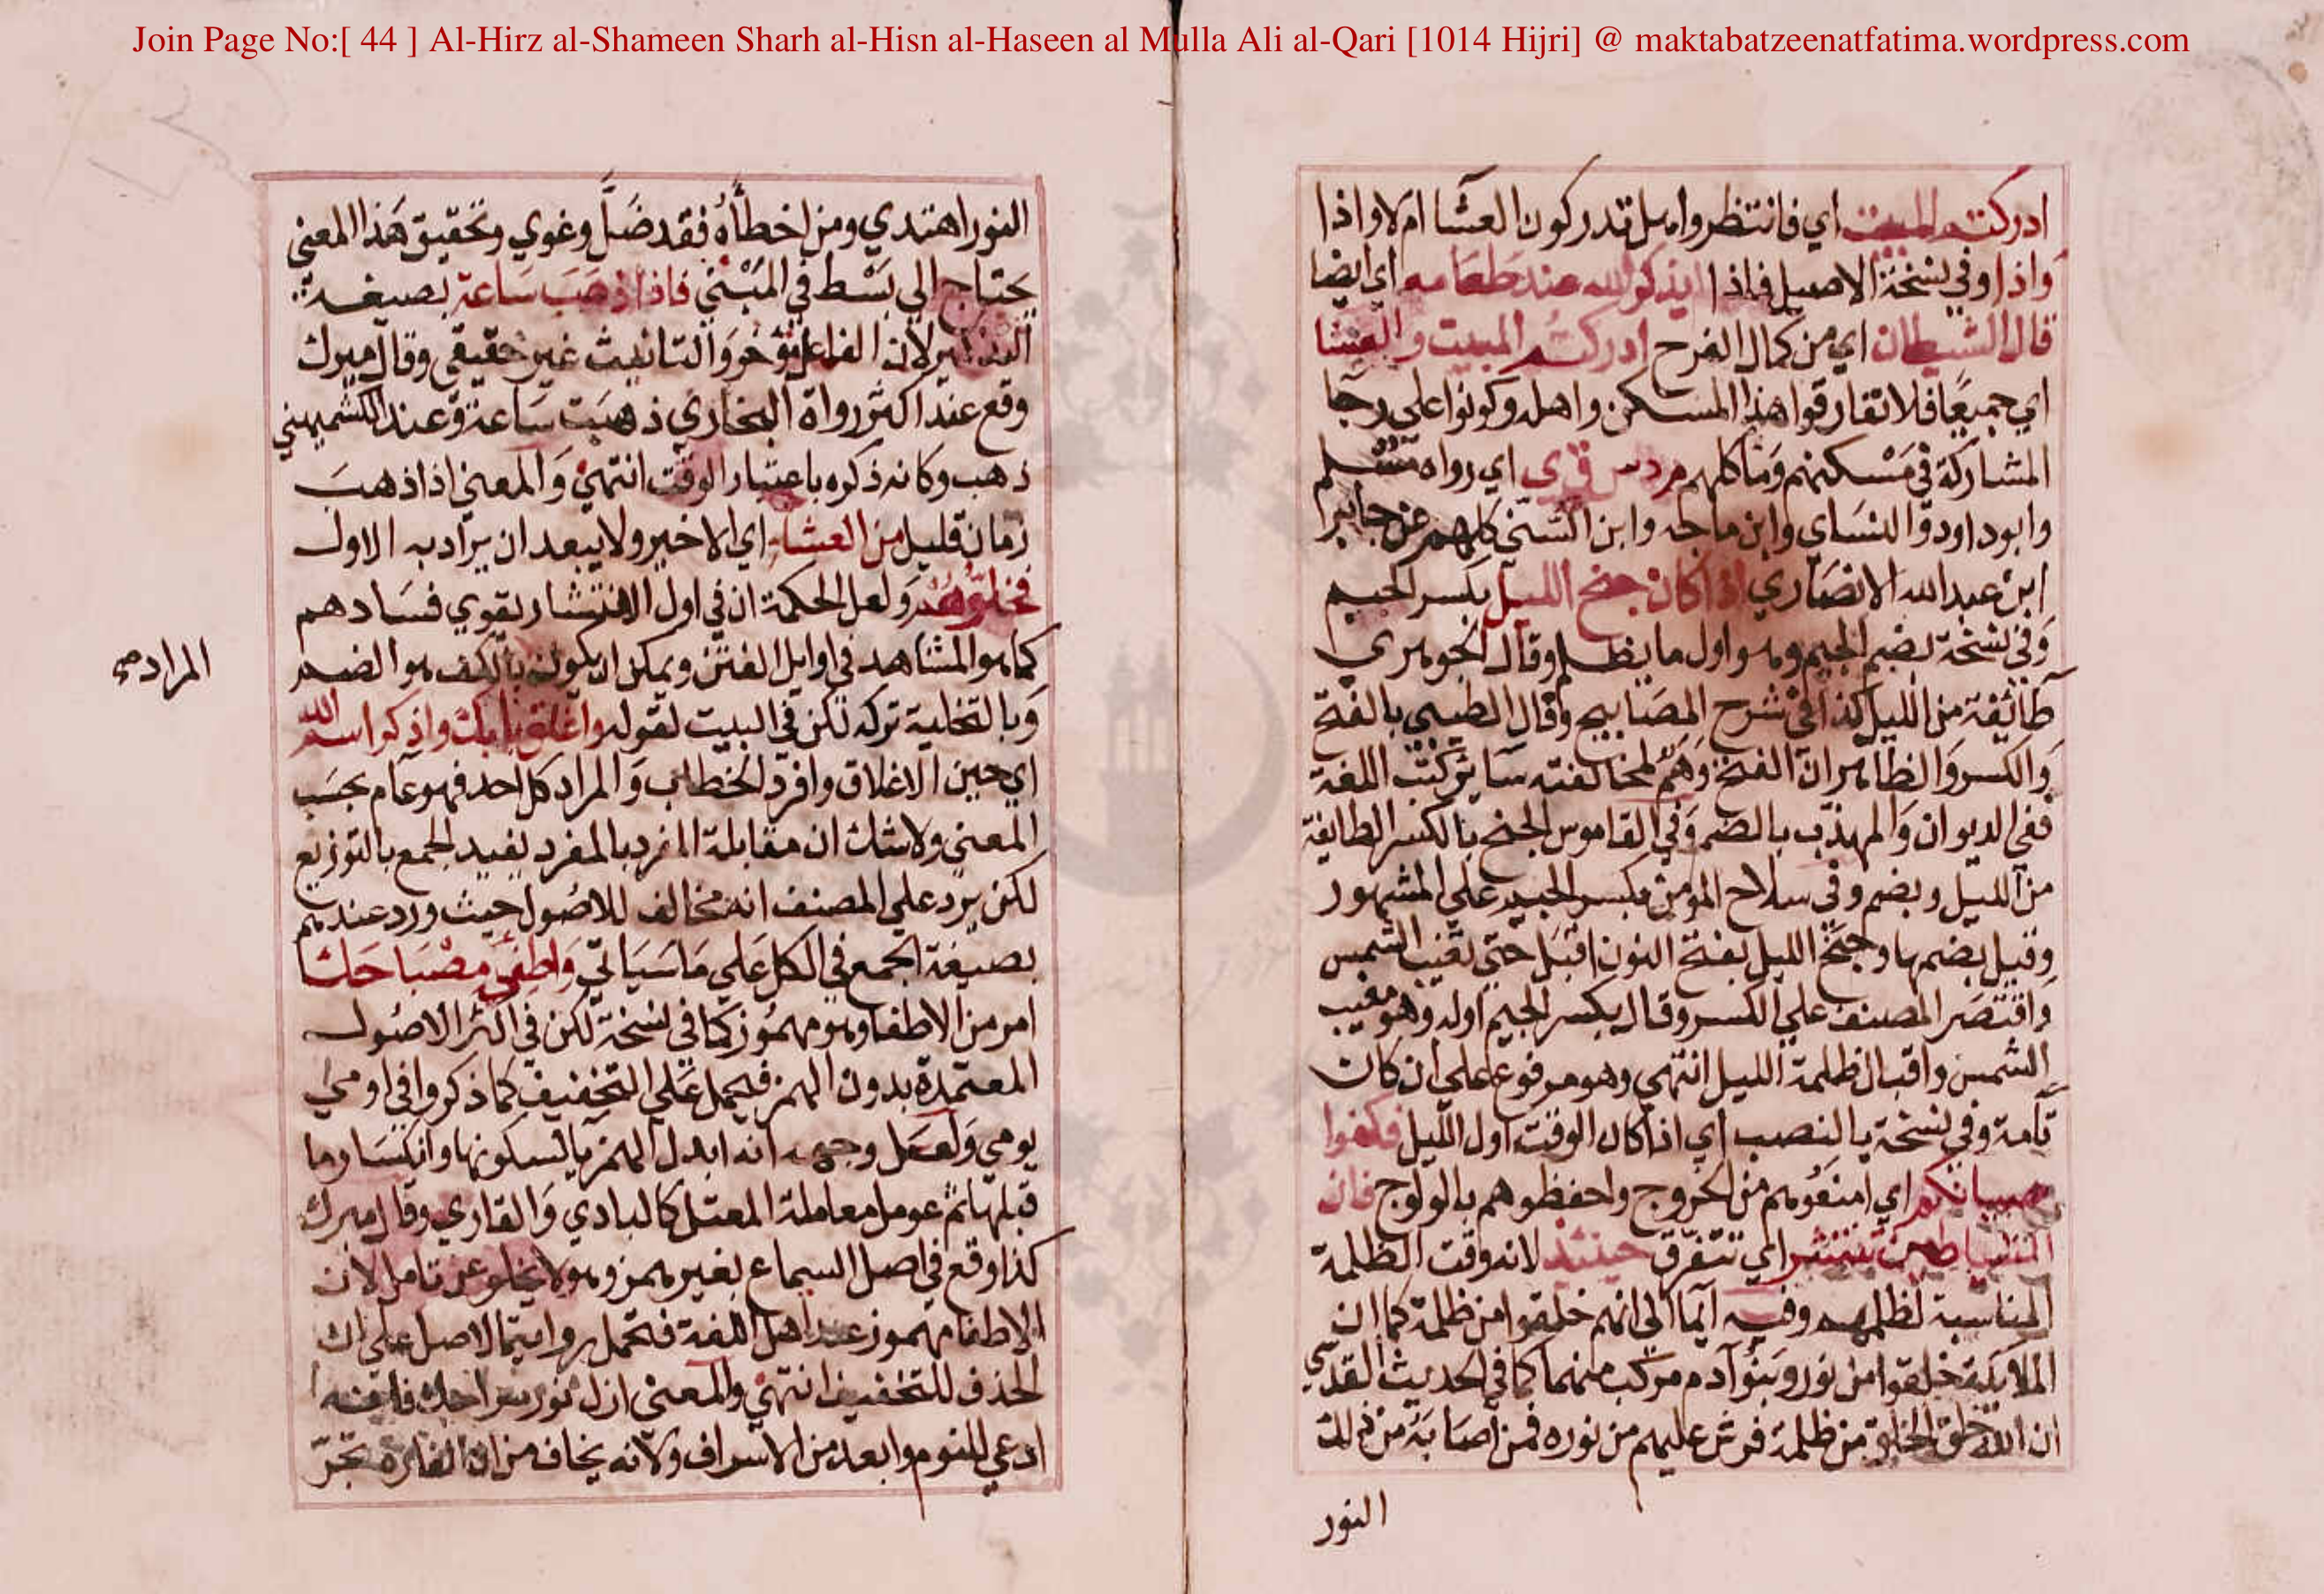 Join Page No:[ 44 ] Al-Hirz al-Shameen Sharh al-Hisn al-Haseen al Mulla Ali al-Qari [1014 Hijri] @ maktabatzeenatfatima.wordpress.com
ادركتم المبيت اي فانتظروا هل تدركون العشا ام لا واذا
واذا وفي نسخة الاصيل فاذا لم يذكر الله عند طعامه اي ايضا
قال الشيطان اي من كمال الفرح ادركتم المبيت والعشا
اي جميعا فلا تفارقوا هذا المسكن واهله وكونوا علي رجا
المشاركة في مسكنهم وماكلهم م د س ق ي اي رواه مسلم
وابو داود والنساي وابن ماجه وابن السني كلهم عن جابر
ابن عبد الله الانصاري اذا كان جنح الليل بكسر الجيم
وفي نسخة بضم الجيم وهو اول ما يظلم وقال الجوهري
طائفة من الليل كذا في شرح المصابيح وقال الطيبي بالفتح
والكسر والظاهر ان الفتح وهم لمخالفته سائر كتب اللغة
ففي الديوان والمهذب بالضم وفي القاموس الجنح بالكسر الطايفة
من الليل وبضم وفي سلاح المومن بكسر الجيم علي المشهور
وقيل بضمها وجنح الليل بفتح النون اقبل حتي تغيب الشمس
واقتصر المصنف علي الكسر وقال بكسر الجيم اوله وهو مغيب
الشمس واقبال ظلمة الليل انتهي وهو مرفوع علي ان كان
تامة وفي نسخة بالنصب اي اذا كان الوقت اول الليل فكفوا
صبيانكم اي امنعوهم من الخروج واحفظوهم بالولوج فان
الشياطين تنتشر اي تتفرق حينئذ لانه وقت الظلمة
المناسبة لظلمهم وفيه ايما الي انهم خلقوا من ظلمة كما ان
الملايكة خلقوا من نور وبنو آدم مركب منهما كما في الحديث القدسي
ان الله خلق الخلق من ظلمة فرش عليهم من نوره فمن اصابه من ذلك
النور
النور اهتدي ومن اخطأه فقد ضل وغوي وتحقيق هذا المعني
يحتاج الي بسط في المبني فاذا ذهب ساعة بصيغة
التذكير لان الفاعل مؤخر والتانيث غير حقيقي وقال ميرك
وقع عند اكثر رواة البخاري ذهبت ساعة وعند الكشميهني
ذهب وكانه ذكره باعتبار الوقت انتهي والمعني اذا ذهب
زمان قليل من العشاء اي الاخير ولا يبعد ان يراد به الاول
فخلوهم ولعل الحكمة ان في اول الانتشار يقوي فسادهم
كما هو المشاهد في اوايل الفتن ويمكن ان يكون بالكف هو الضم
المراد
وبالتخلية تركه لكن في البيت لقوله واغلق بابك واذكر اسم الله
اي حين الاغلاق وافرد الخطاب والمراد كل احد فهو عام بحسب
المعني ولا شك ان مقابلة المفرد بالمفرد يفيد الجمع بالتوزيع
لكن يرد علي المصنف انه مخالف للاصول حيث ورد عندهم
بصيغة الجمع في الكل علي ما سياتي واطفئ مصباحك
امر من الاطفا وهو مهموز كما في نسخة لكن في اكثر الاصول
المعتمدة بدون الهمز فيحمل علي التخفيف كما ذكروا في اومي
يومي ولعل وجهه انه ابدل الهمز يا لسكونها وانكسار ما
قبلها ثم عومل معاملة المعتل كالبادي والقاري وقال ميرك
كذا وقع في اصل السماع بغير همز وهو لا يخلو عن تامل لان
الاطفا مهموز عند اهل اللغة فتحمل رواية الاصل علي ان
الحذف للتخفيف انتهي والمعني ازل نور سراجك فانه
ادعي للنوم وابعد من الاسراف ولانه يخاف من ان الفارة تجر